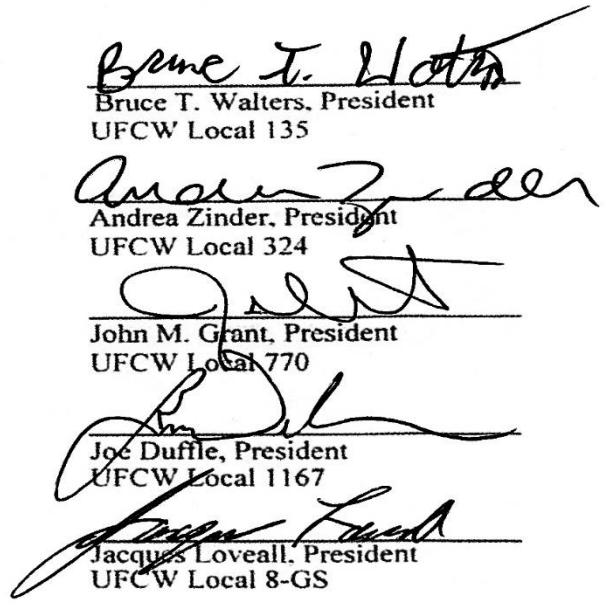 Bruce T. Walters, President
UFCW Local 135
Andrea Zinder, President
UFCW Local 324
John M. Grant, President
UFCW Local 770
Joe Duffle, President
UFCW Local 1167
Jacques Loveall, President
UFCW Local 8-GS